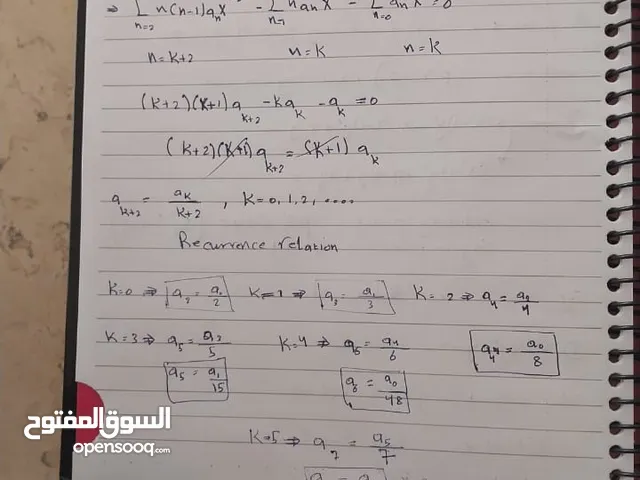 ⇒ Σ n(n-1)aₙx - Σ naₙx - Σ aₙx = 0
n=2 n=1 n=0
n=k+2 n=k n=k
(k+2)(k+1)a_{k+2} - ka_k - a_k = 0
(k+2)(k+1)a_{k+2} = (k+1)a_k
a_{k+2} = a_k/k+2 , k=0,1,2,....
Recurrence relation
k=0 ⇒ a₂ = a₀/2 k=1 ⇒ a₃ = a₁/3 k=2 ⇒ a₄ = a₂/4
k=3 ⇒ a₅ = a₃/5 k=4 ⇒ a₆ = a₄/6 a₄ = a₀/8
a₅ = a₁/15 a₆ = a₀/48
k=5 ⇒ a₇ = a₅/7
السوق المفتوح
opensooq.com